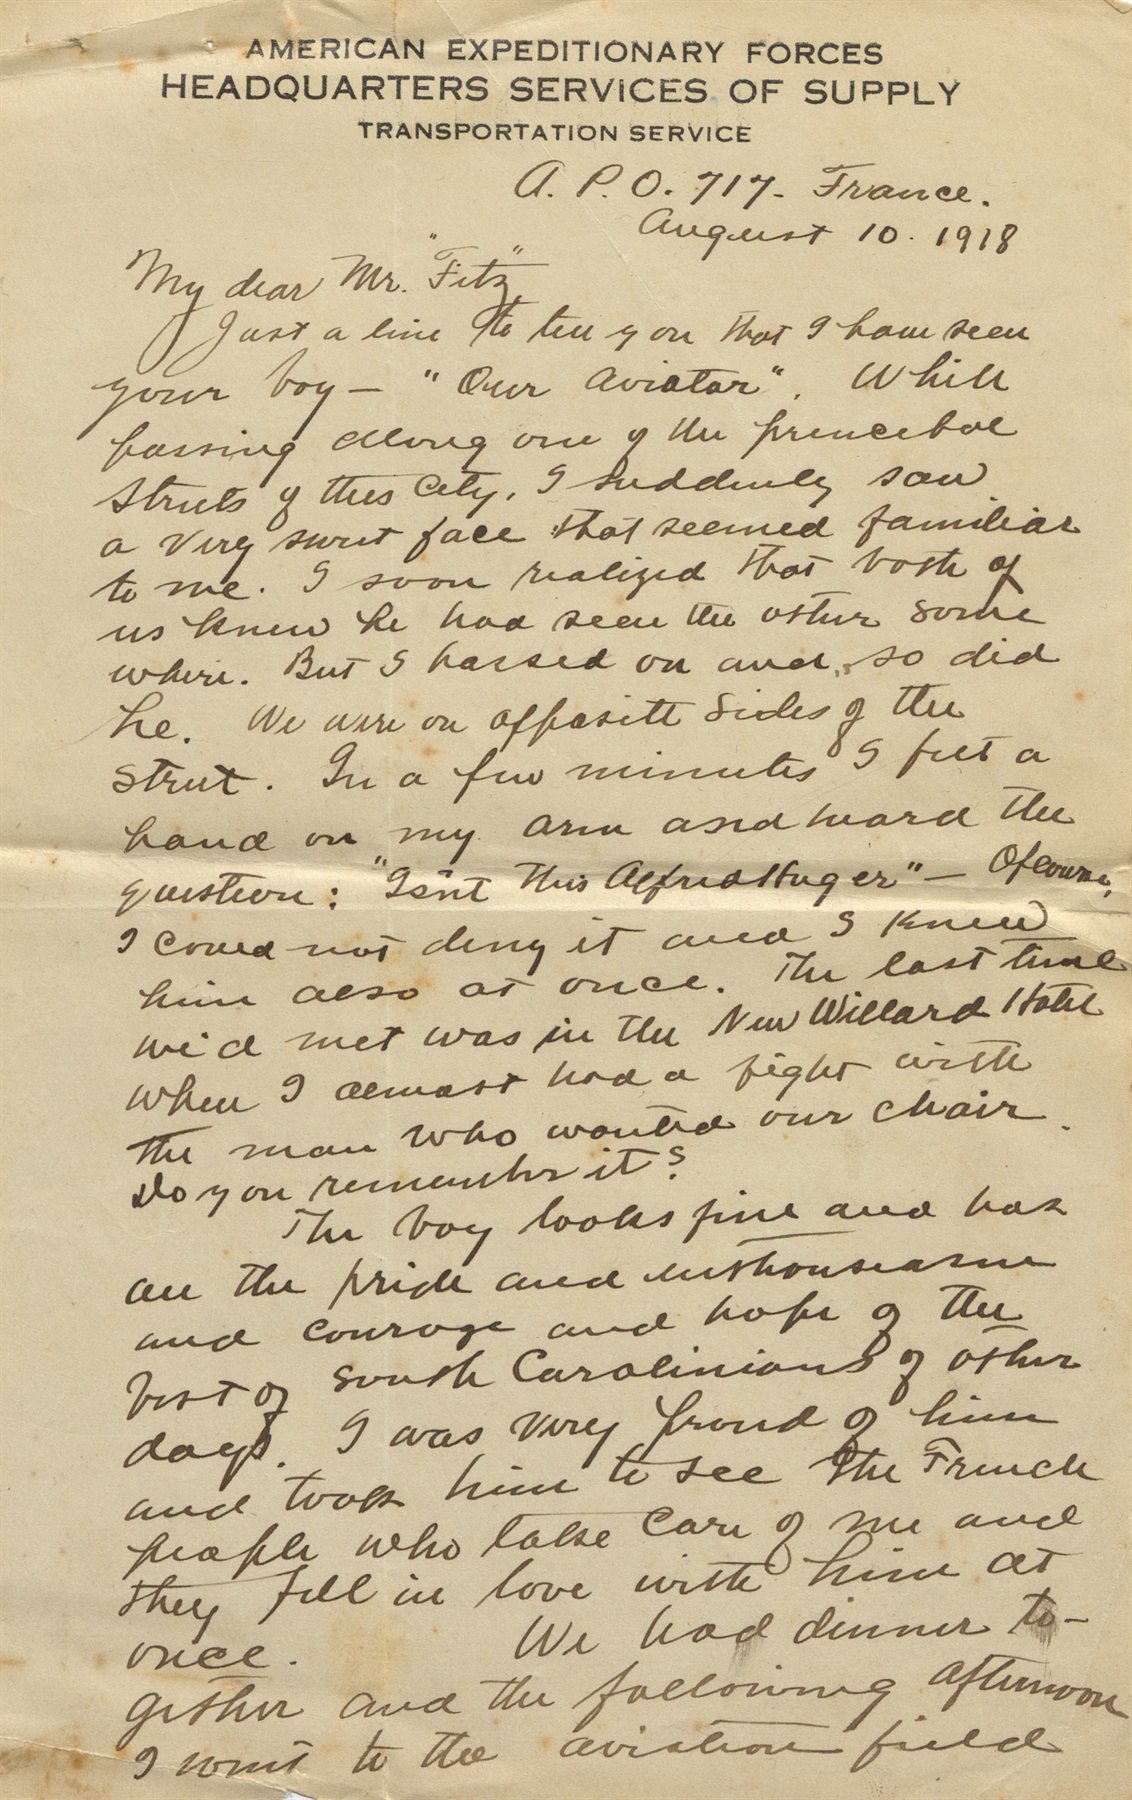 AMERICAN EXPEDITIONARY FORCES
HEADQUARTERS SERVICES OF SUPPLY
TRANSPORTATION SERVICE
A. P. O. 717- France.
August 10. 1918
My dear Mr. "Fitz",
Just a line to tell you that I have seen
your boy — "Our Aviator". While
passing along one of the principal
streets of this City, I suddenly saw
a very sweet face that seemed familiar
to me. I soon realized that both of
us knew he had seen the other some
where. But I passed on and so did
he. We were on opposite sides of the
street. In a few minutes I felt a
hand on my arm and heard the
question: "Isn't this Alfred Huger" — Of course,
I could not deny it and I knew
him also at once. The last time
we'd met was in the New Willard Hotel
when I almost had a fight with
the man who wanted our chair.
Do you remember it?
The boy looks fine and has
all the pride and enthousiasm
and courage and hope of the
best of South Carolinians of other
days. I was very proud of him
and took him to see the French
people who take care of me and
they fell in love with him at
once. We had dinner to-
gether and the following afternoon
I went to the aviation field